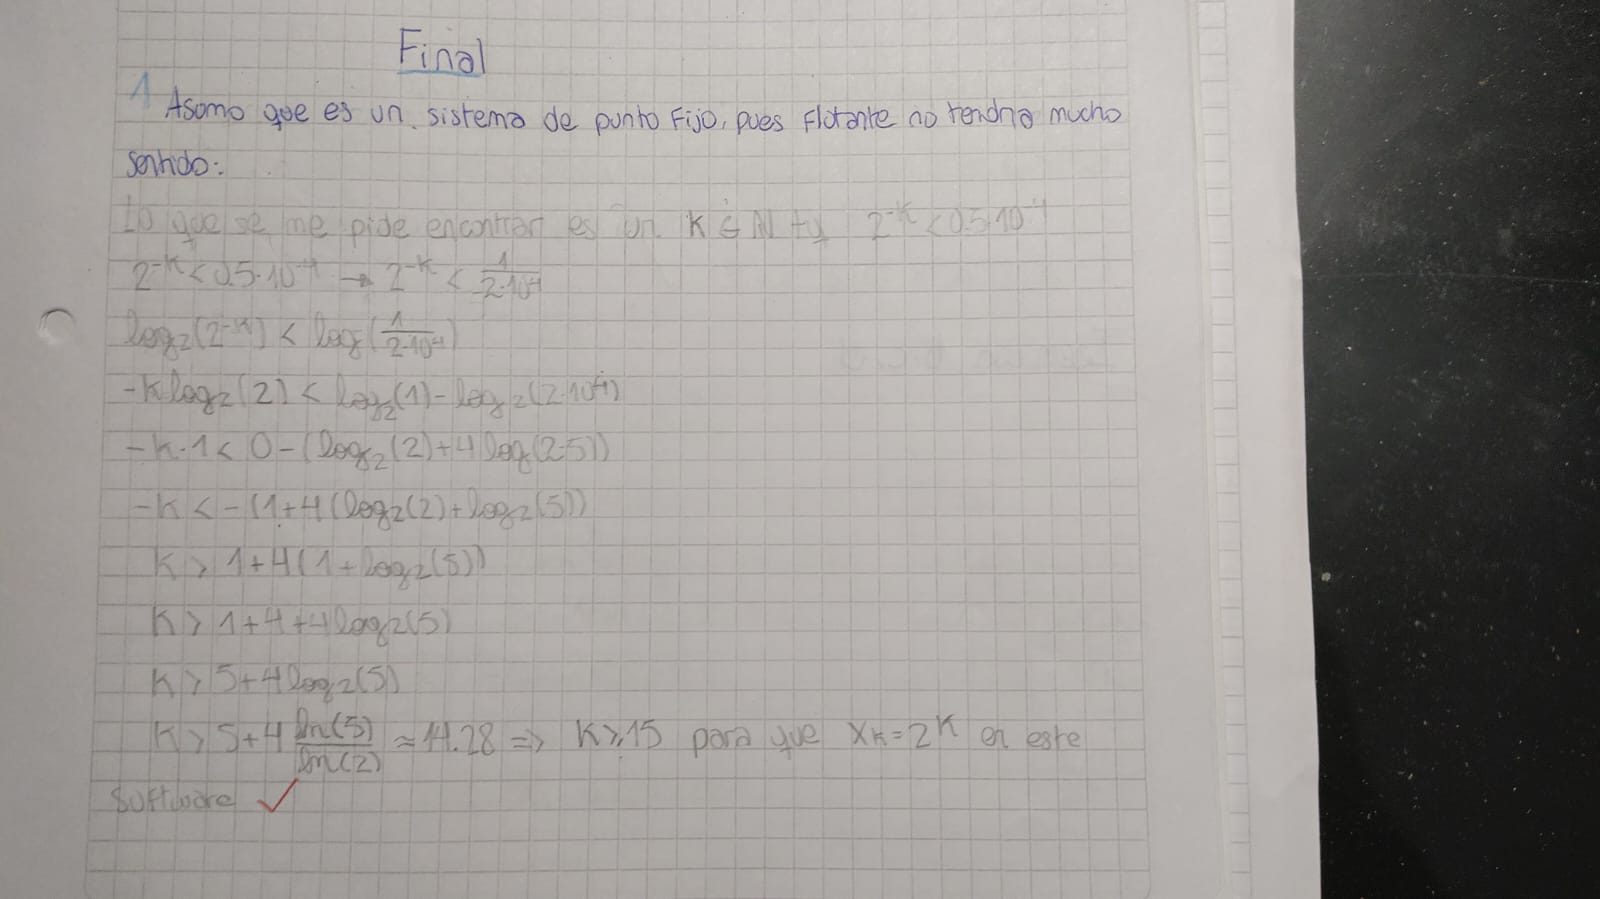 Final
1 Asumo que es un sistema de punto Fijo, pues Flotante no tendria mucho
sentido:
Lo que se me pide encontrar es un K ∈ ℕ tq 2^-K < 0.5·10^-4
2^-K < 0.5·10^-4 → 2^-K < 1/(2·10^4)
log₂(2^-K) < log(1/(2·10^4))
-K log₂(2) < log₂(1) - log₂(2·10^4)
-K·1 < 0 - (log₂(2)+4 log(2·5))
-K < -(1+4(log₂(2)+log₂(5))
K > 1+4(1+log₂(5))
K > 1+4+4log₂(5)
K > 5+4log₂(5)
K > 5+4 ln(5)/ln(2) ≈ 14.28 => K ≥ 15 para que X_K = 2^K en este
software ✓